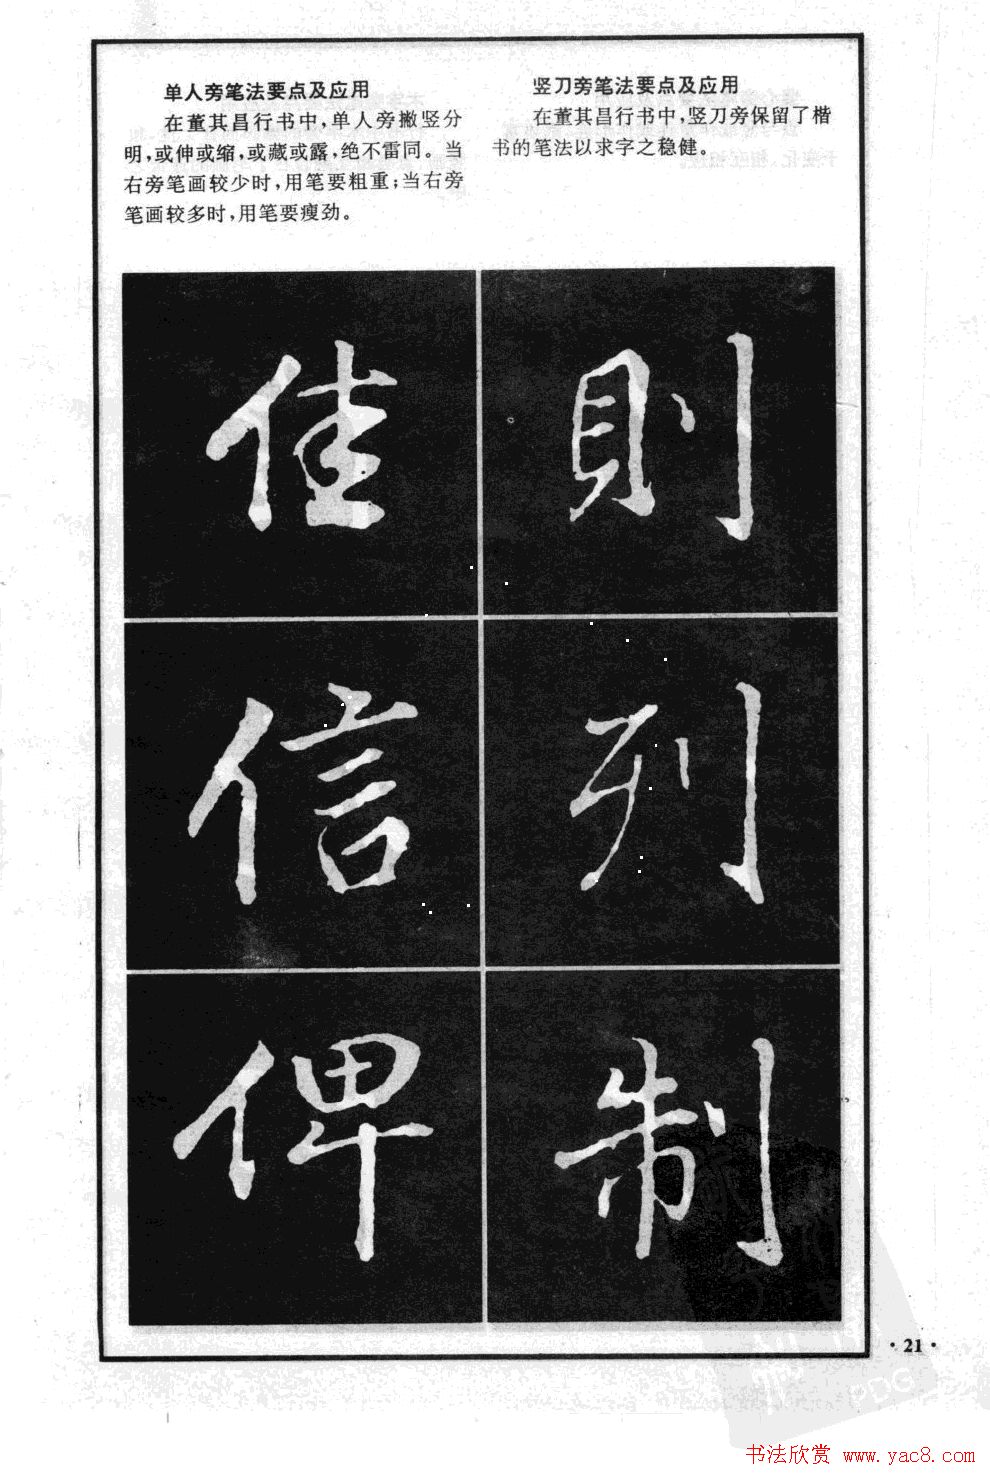 单人旁笔法要点及应用
在董其昌行书中，单人旁撇竖分
明，或伸或缩，或藏或露，绝不雷同。当
右旁笔画较少时，用笔要粗重；当右旁
笔画较多时，用笔要瘦劲。
竖刀旁笔法要点及应用
在董其昌行书中，竖刀旁保留了楷
书的笔法以求字之稳健。
佳
信
俾
則
列
制
·21·
书法欣赏 www.yac8.com